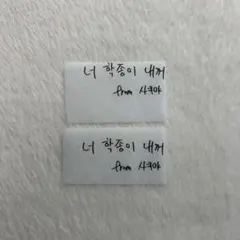 너 학종이 내꺼
from 사쿠야
너 학종이 내꺼
from 사쿠야